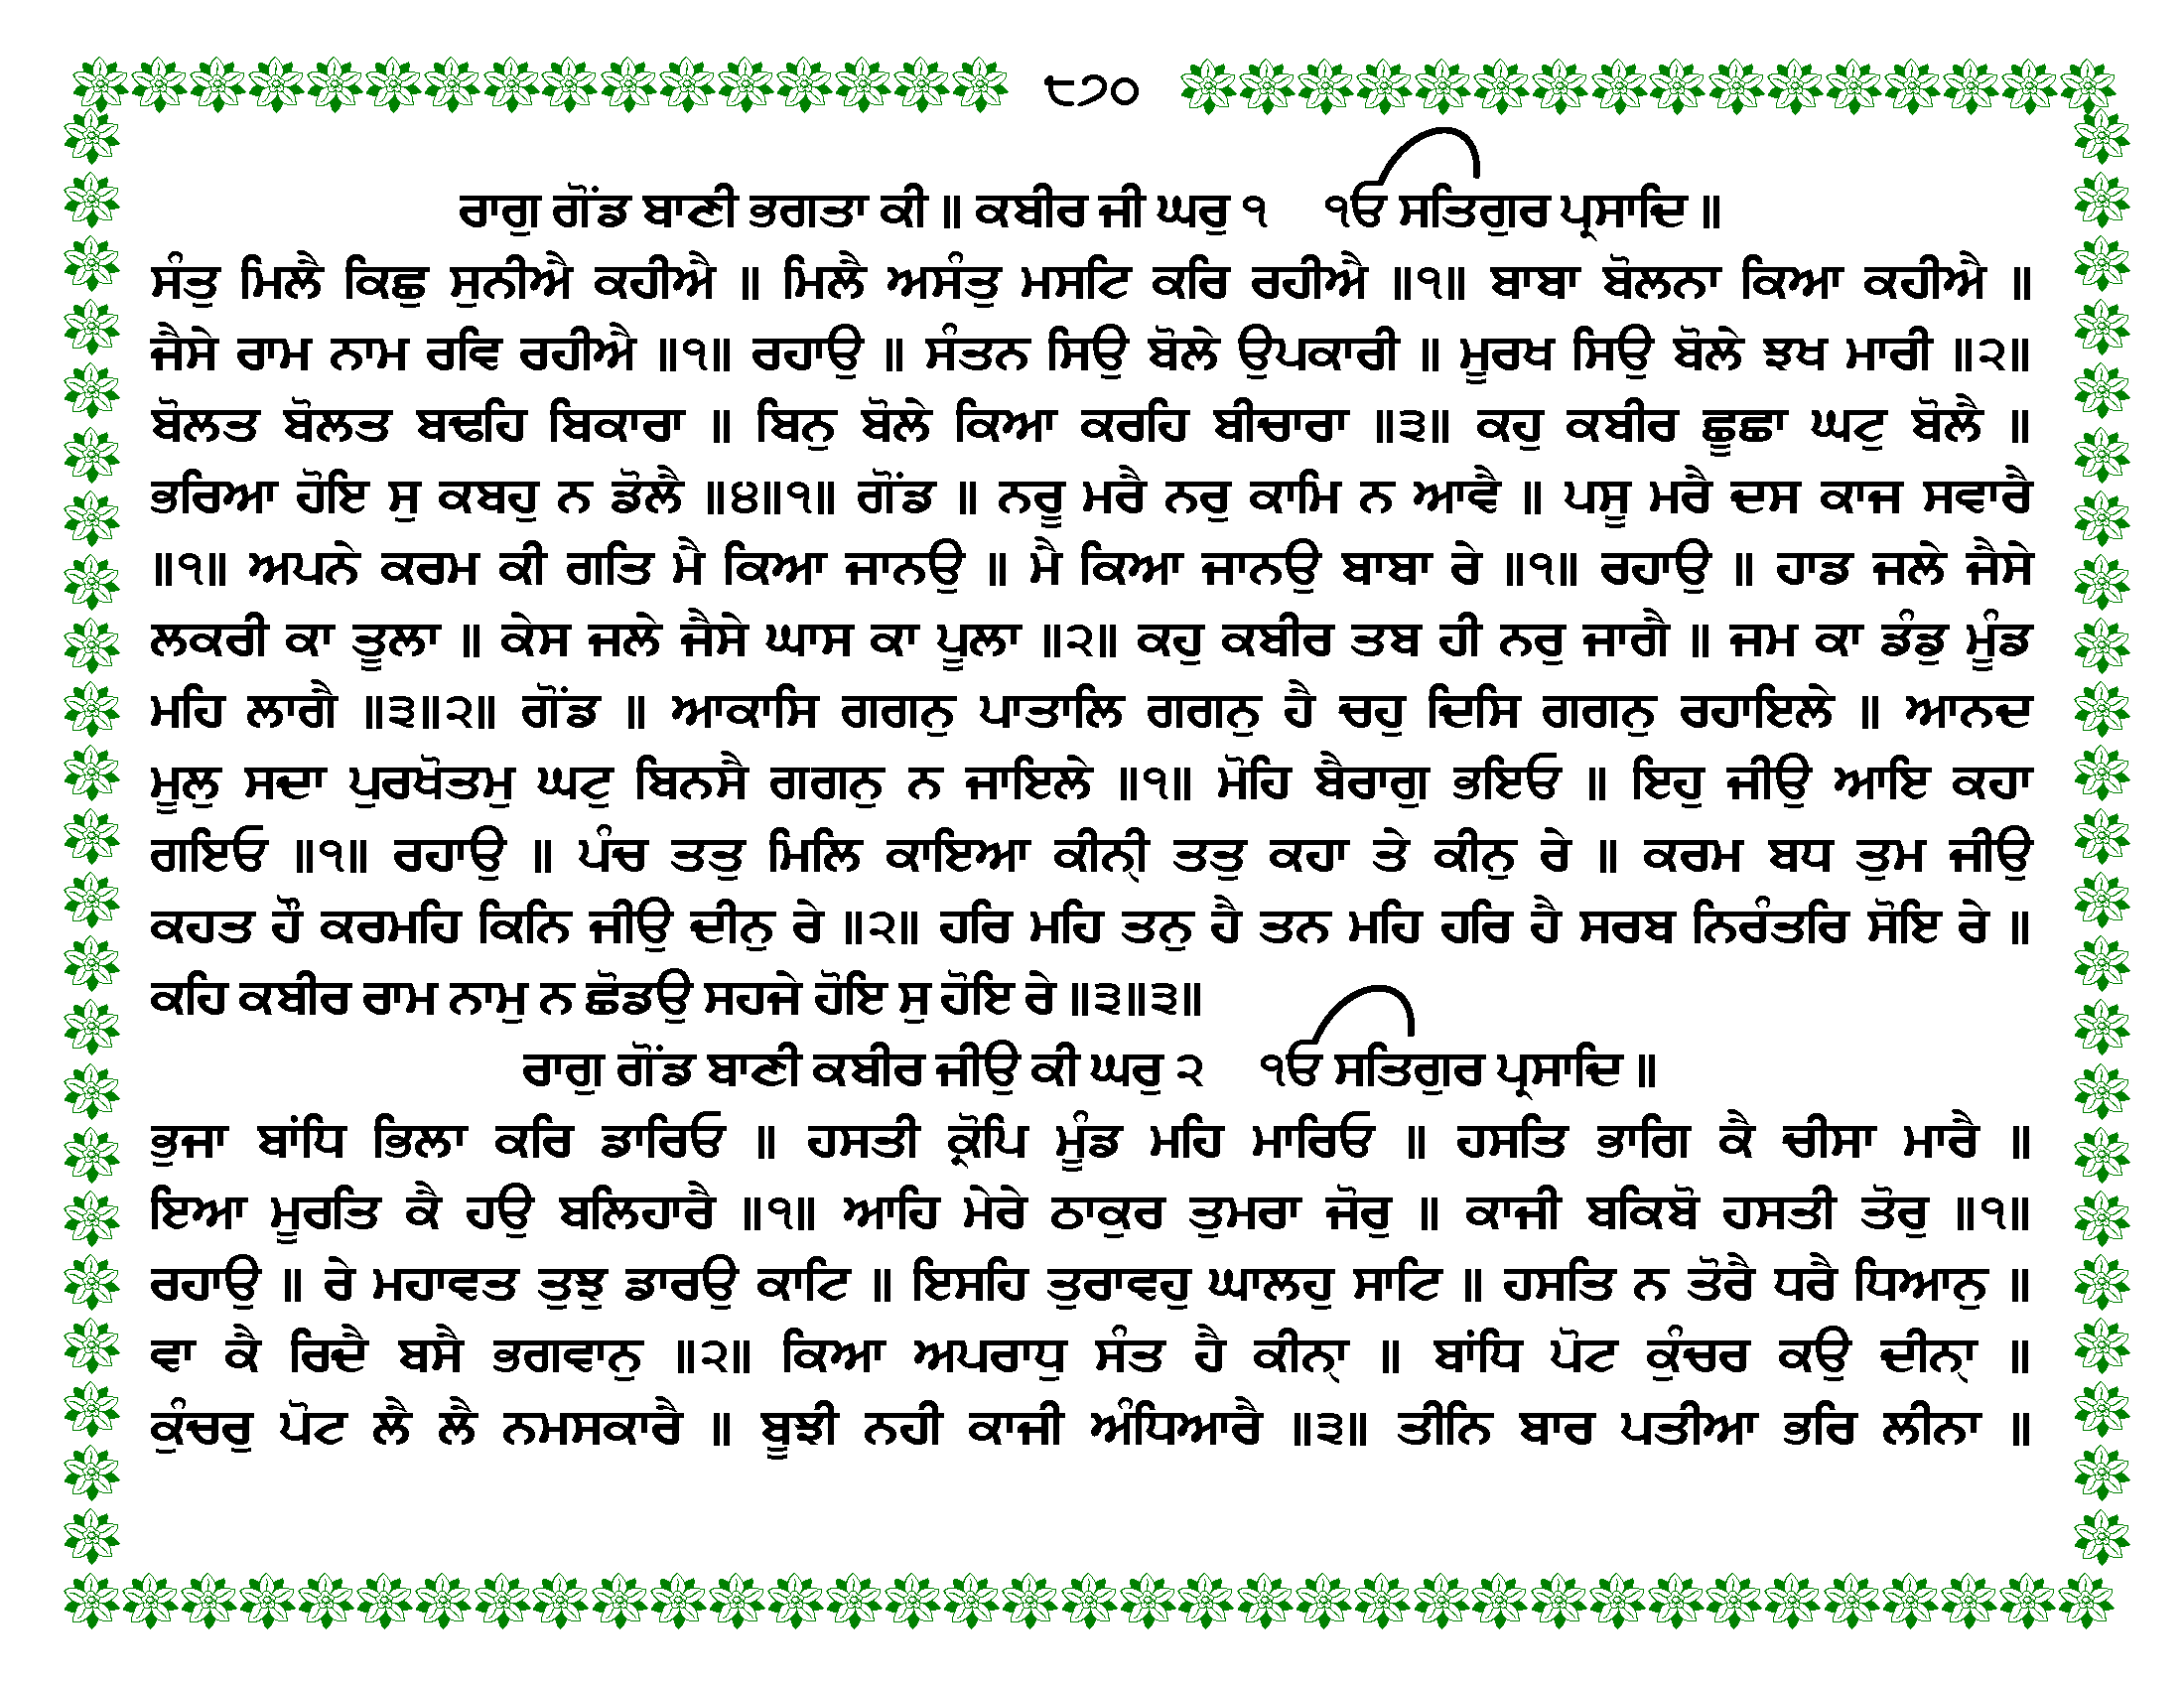 ੮੭੦
ਰਾਗੁ ਗੋਂਡ ਬਾਣੀ ਭਗਤਾ ਕੀ ॥ ਕਬੀਰ ਜੀ ਘਰੁ ੧ ੴ ਸਤਿਗੁਰ ਪ੍ਰਸਾਦਿ ॥
ਸੰਤੁ ਮਿਲੈ ਕਿਛੁ ਸੁਨੀਐ ਕਹੀਐ ॥ ਮਿਲੈ ਅਸੰਤੁ ਮਸਟਿ ਕਰਿ ਰਹੀਐ ॥੧॥ ਬਾਬਾ ਬੋਲਨਾ ਕਿਆ ਕਹੀਐ ॥
ਜੈਸੇ ਰਾਮ ਨਾਮ ਰਵਿ ਰਹੀਐ ॥੧॥ ਰਹਾਉ ॥ ਸੰਤਨ ਸਿਉ ਬੋਲੇ ਉਪਕਾਰੀ ॥ ਮੂਰਖ ਸਿਉ ਬੋਲੇ ਝਖ ਮਾਰੀ ॥੨॥
ਬੋਲਤ ਬੋਲਤ ਬਢਹਿ ਬਿਕਾਰਾ ॥ ਬਿਨੁ ਬੋਲੇ ਕਿਆ ਕਰਹਿ ਬੀਚਾਰਾ ॥੩॥ ਕਹੁ ਕਬੀਰ ਛੂਛਾ ਘਟੁ ਬੋਲੈ ॥
ਭਰਿਆ ਹੋਇ ਸੁ ਕਬਹੁ ਨ ਡੋਲੈ ॥੪॥੧॥ ਗੋਂਡ ॥ ਨਰੂ ਮਰੈ ਨਰੁ ਕਾਮਿ ਨ ਆਵੈ ॥ ਪਸੂ ਮਰੈ ਦਸ ਕਾਜ ਸਵਾਰੈ
॥੧॥ ਅਪਨੇ ਕਰਮ ਕੀ ਗਤਿ ਮੈ ਕਿਆ ਜਾਨਉ ॥ ਮੈ ਕਿਆ ਜਾਨਉ ਬਾਬਾ ਰੇ ॥੧॥ ਰਹਾਉ ॥ ਹਾਡ ਜਲੇ ਜੈਸੇ
ਲਕਰੀ ਕਾ ਤੂਲਾ ॥ ਕੇਸ ਜਲੇ ਜੈਸੇ ਘਾਸ ਕਾ ਪੂਲਾ ॥੨॥ ਕਹੁ ਕਬੀਰ ਤਬ ਹੀ ਨਰੁ ਜਾਗੈ ॥ ਜਮ ਕਾ ਡੰਡੁ ਮੂੰਡ
ਮਹਿ ਲਾਗੈ ॥੩॥੨॥ ਗੋਂਡ ॥ ਆਕਾਸਿ ਗਗਨੁ ਪਾਤਾਲਿ ਗਗਨੁ ਹੈ ਚਹੁ ਦਿਸਿ ਗਗਨੁ ਰਹਾਇਲੇ ॥ ਆਨਦ
ਮੂਲੁ ਸਦਾ ਪੁਰਖੋਤਮੁ ਘਟੁ ਬਿਨਸੈ ਗਗਨੁ ਨ ਜਾਇਲੇ ॥੧॥ ਮੋਹਿ ਬੈਰਾਗੁ ਭਇਓ ॥ ਇਹੁ ਜੀਉ ਆਇ ਕਹਾ
ਗਇਓ ॥੧॥ ਰਹਾਉ ॥ ਪੰਚ ਤਤੁ ਮਿਲਿ ਕਾਇਆ ਕੀਨੑੀ ਤਤੁ ਕਹਾ ਤੇ ਕੀਨੁ ਰੇ ॥ ਕਰਮ ਬਧ ਤੁਮ ਜੀਉ
ਕਹਤ ਹੌ ਕਰਮਹਿ ਕਿਨਿ ਜੀਉ ਦੀਨੁ ਰੇ ॥੨॥ ਹਰਿ ਮਹਿ ਤਨੁ ਹੈ ਤਨ ਮਹਿ ਹਰਿ ਹੈ ਸਰਬ ਨਿਰੰਤਰਿ ਸੋਇ ਰੇ ॥
ਕਹਿ ਕਬੀਰ ਰਾਮ ਨਾਮੁ ਨ ਛੋਡਉ ਸਹਜੇ ਹੋਇ ਸੁ ਹੋਇ ਰੇ ॥੩॥੩॥
ਰਾਗੁ ਗੋਂਡ ਬਾਣੀ ਕਬੀਰ ਜੀਉ ਕੀ ਘਰੁ ੨ ੴ ਸਤਿਗੁਰ ਪ੍ਰਸਾਦਿ ॥
ਭੁਜਾ ਬਾਂਧਿ ਭਿਲਾ ਕਰਿ ਡਾਰਿਓ ॥ ਹਸਤੀ ਕ੍ਰੋਪਿ ਮੂੰਡ ਮਹਿ ਮਾਰਿਓ ॥ ਹਸਤਿ ਭਾਗਿ ਕੈ ਚੀਸਾ ਮਾਰੈ ॥
ਇਆ ਮੂਰਤਿ ਕੈ ਹਉ ਬਲਿਹਾਰੈ ॥੧॥ ਆਹਿ ਮੇਰੇ ਠਾਕੁਰ ਤੁਮਰਾ ਜੋਰੁ ॥ ਕਾਜੀ ਬਕਿਬੋ ਹਸਤੀ ਤੋਰੁ ॥੧॥
ਰਹਾਉ ॥ ਰੇ ਮਹਾਵਤ ਤੁਝੁ ਡਾਰਉ ਕਾਟਿ ॥ ਇਸਹਿ ਤੁਰਾਵਹੁ ਘਾਲਹੁ ਸਾਟਿ ॥ ਹਸਤਿ ਨ ਤੋਰੈ ਧਰੈ ਧਿਆਨੁ ॥
ਵਾ ਕੈ ਰਿਦੈ ਬਸੈ ਭਗਵਾਨੁ ॥੨॥ ਕਿਆ ਅਪਰਾਧੁ ਸੰਤ ਹੈ ਕੀਨੑਾ ॥ ਬਾਂਧਿ ਪੋਟ ਕੁੰਚਰ ਕਉ ਦੀਨੑਾ ॥
ਕੁੰਚਰੁ ਪੋਟ ਲੈ ਲੈ ਨਮਸਕਾਰੈ ॥ ਬੂਝੀ ਨਹੀ ਕਾਜੀ ਅੰਧਿਆਰੈ ॥੩॥ ਤੀਨਿ ਬਾਰ ਪਤੀਆ ਭਰਿ ਲੀਨਾ ॥